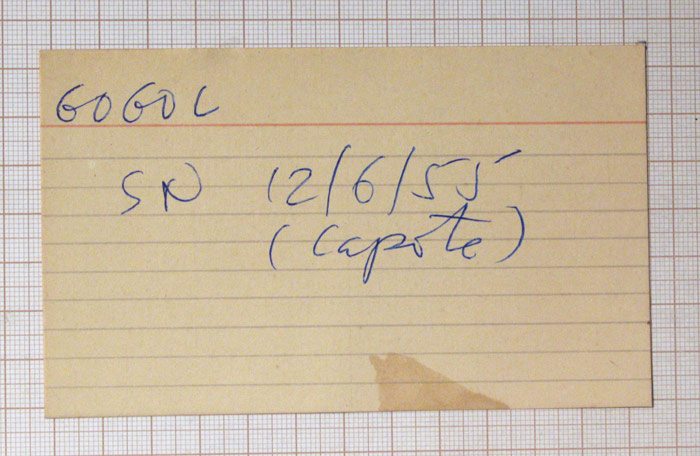 GOGOL
SN 12/6/55
(Capote)